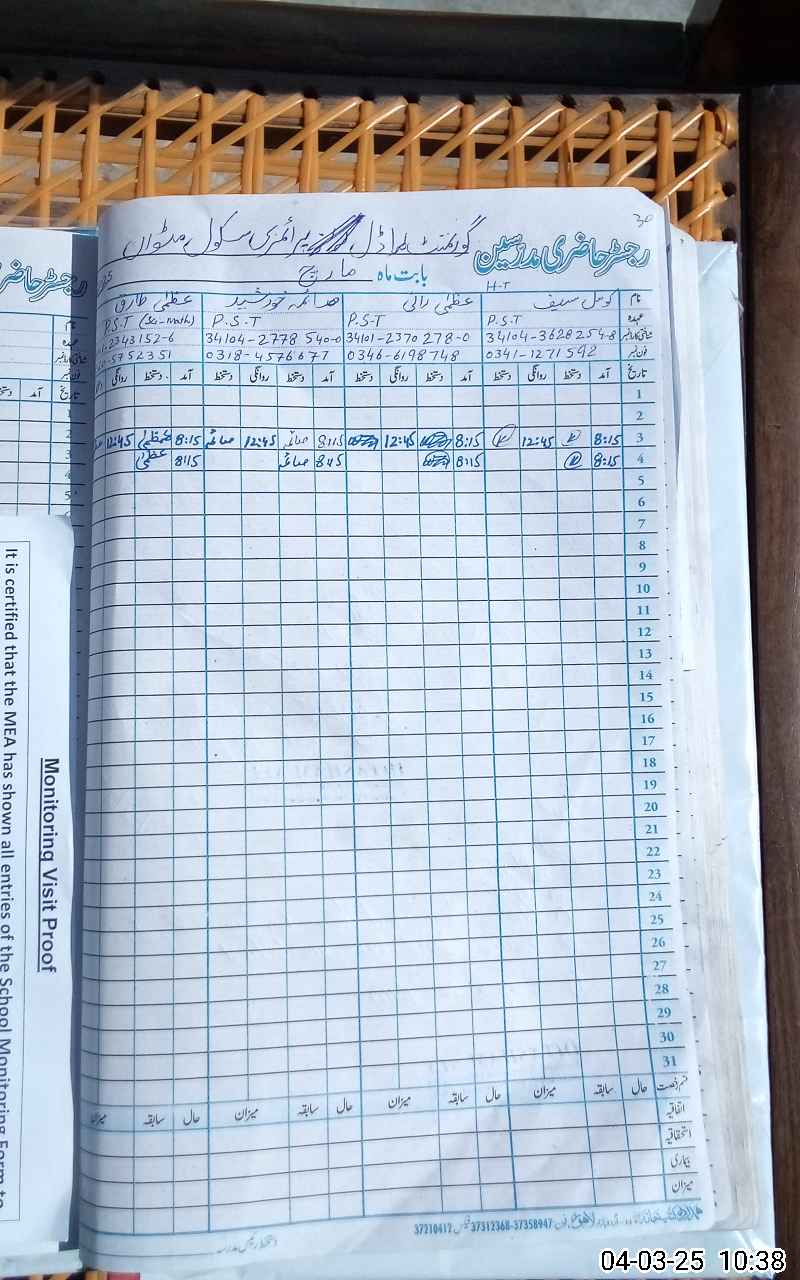 30
رجسٹر حاضری مدرسین گورنمنٹ ماڈل پرائمری سکول
بابت ماہ مارچ
H-T
نام کومل سیف عظمیٰ رانی صائمہ خورشید عظمیٰ طارق
عہدہ P.S.T P.S.T P.S.T (Sci-Math)
شناختی کارڈ نمبر 34104-3628254-8 34101-2370278-0 34104-2778540-0 2343152-6
فون نمبر 0341-1271592 0346-6198748 0318-4576677 5752351
تاریخ آمد دستخط روانگی دستخط آمد دستخط روانگی دستخط آمد دستخط روانگی دستخط آمد دستخط روانگی
1
2
3 8:15 12:45 8:15 12:45 8:15 صائمہ 12:45 صائمہ 8:15 عظمیٰ 12:45
4 8:15 8:15 8:15 صائمہ 8:15 عظمیٰ
5
6
7
8
9
10
11
12
13
14
15
16
17
18
19
20
21
22
23
24
25
26
27
28
29
30
31
قسم رخصت حال سابقہ میزان حال سابقہ میزان حال سابقہ میزان حال سابقہ میزان
اتفاقیہ
استحقاقیہ
بیماری
میزان
دستخط رئیس مدرسہ
فون 37312368-37358947 فیکس 37210412
رجسٹر حاضری
نام
عہدہ
شناختی کارڈ نمبر
فون نمبر
تاریخ آمد
1
2
3
4
5
Monitoring Visit Proof
It is certified that the MEA has shown all entries of the School Monitoring Form to
04-03-25 10:38